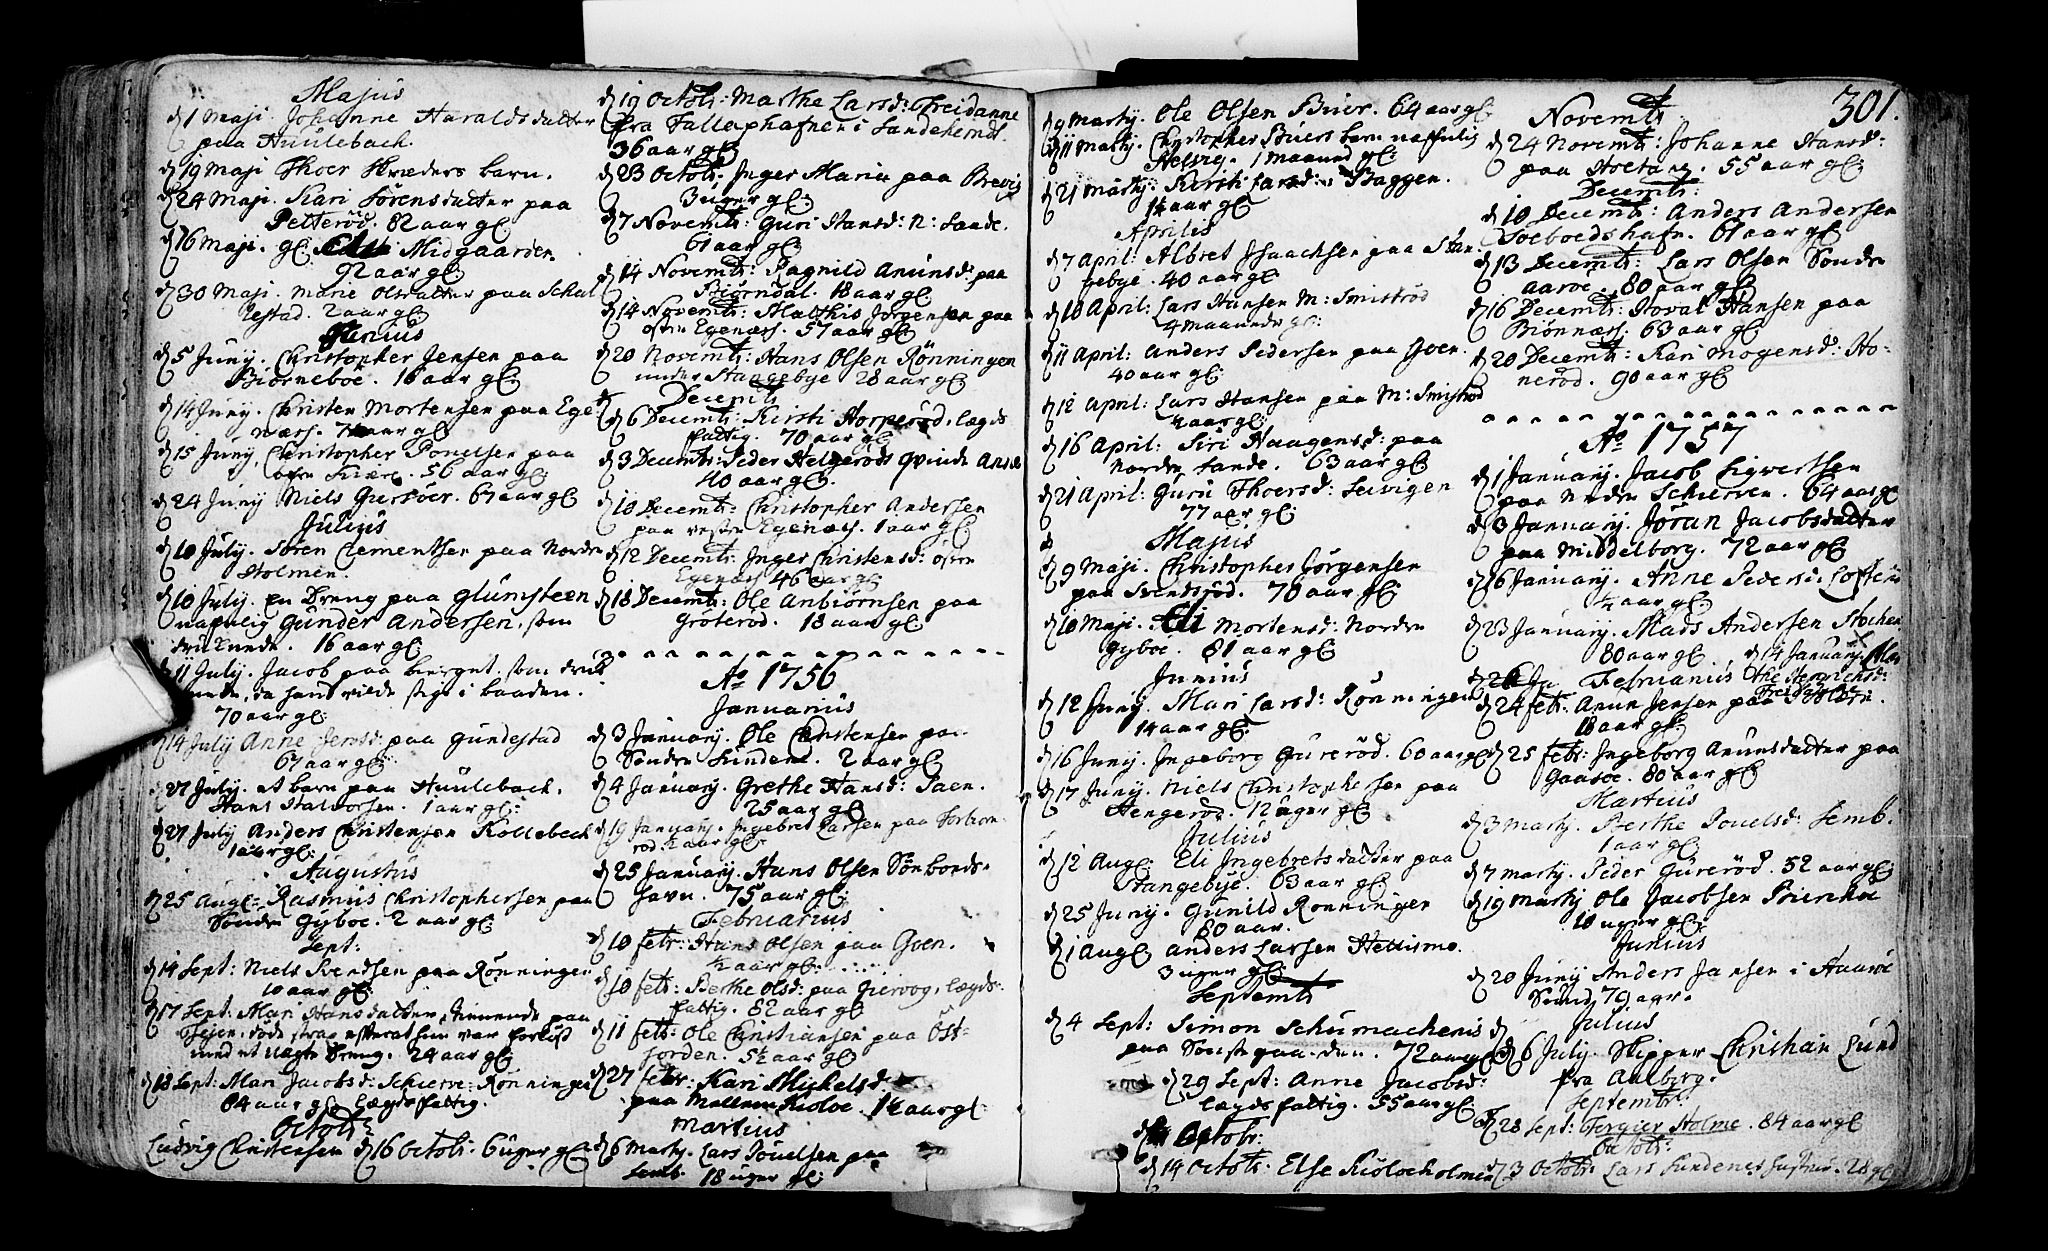 Majus
d 1 Maji. Johanne Haraldsdatter
paa Huulebach.
d 19 Maji Thoer Skræders barn.
d 24 Maji. Kari Sörensdatter paa
Petteröd. 82 aar gl:
d 16 Maji. gl: Midgaarden.
92 aar gl:
d 30 Maji. Marie Olsdatter paa Schal
lestad. 2 aar gl:
Junius
d 5 Junij. Christopher Jensen paa
Biörneboe. 16 aar gl:
d 14 Junij. Christen Mortensen paa Ege
næss. aar gl:
d 15 Junij Christopher Povelsen paa
ofre Kiære. 56 aar gl:
d 24 Junij Niels Gursöer. 67 aar gl:
Julius
d 10 Julij. Sören Clementsen paa Nordre
Holmen.
d 10 Julij. en Dreng paa Glumsteen
nafnlig Gunder Andersen, som
druknede. 16 aar gl:
d 11 Julij. Jacob paa berget, som druk
nede, da hand vilde stige i baaden.
70 aar gl:
d 14 Julij Anne Jensd: paa Gundestad
67 aar gl:
d 27 Julij. et barn paa Huulebach.
Hans Halvorsen. 1 aar gl:
d 27 Julij Anders Christensen Kollebech
1 aar gl:
Augustus
d 25 Aug: Rasmus Christophersen paa
Söndre Gyboe. 2 aar gl:
Sept:
d 14 Sept: Niels Svendsen paa Rönningen
10 aar gl:
d 17 Sept: Mari Hansdatter, tienende paa
Fejen, döde strax efterat hun var forlöst
med et uægte Dreng. 24 aar gl:
d 18 Sept: Mari Jacobsd: Schierve-Rönningen
84 aar gl: Lægdsfattig.
Octobr:
Ludvig Christensen d 16 Octobr: 6 uger gl:
d 19 Octobr: Marthe Larsd: Freidanne
fra Tallaxhafnen i Sandeherrd.
36 aar gl:
d 23 Octobr. Inger Maria paa Brevig
3 uger gl:
d 7 Novembr: Guri Hansd: N: Sande.
61 aar gl:
d 14 Novembr: Ragnild Anunsd: paa
Biörndal. 18 aar gl:
d 14 Novembr: Mathis Jörgensen paa
ofre Egenæss. 57 aar gl:
d 20 Novembr: Hans Olsen Rönningen
under Stangebye 28 aar gl:
Decembr
d 6 Decembr: Kirsti Horperöd, Lægds
fattig. 70 aar gl:
d 3 Decembr: Peder Helgeröds Qvinde Anne
40 aar gl:
d 10 Decembr: Christopher Andersen
paa vestre Egenæs. 1 aar gl:
d 12 Decembr: Inger Christensd: ofre
Egenæs 46 aar gl:
d 18 Decembr: Ole Anbiörnsen paa
Gröteröd. 18 aar gl:
Ao 1756
Januarius
d 3 Januarij. Ole Christensen paa
Söndre Sundene. 2 aar gl:
d 4 Januarij. Grethe Hansd: Saen.
25 aar gl:
d 19 Januarij. Ingebret Larsen paa Torbiörn
röd ½ aar gl:
d 25 Januarij. Hans Olsen Sönbonds-
havn. 75 aar gl:
Februarius
d 10 febr: Hans Olsen paa Goen.
½ aar gl:
d 10 febr: Berthe Olsd: paa Giervog, lægds-
fattig. 82 aar gl
d 11 febr: Ole Christiansen paa Öst-
jorden. 5½ aar gl:
d 27 febr: Kari Michelsd
paa Mellem Kiöloe. 14 aar gl:
Martius
d 6 Martij. Lars Povelsen paa
Semb. 18 uger gl:
301.
d 9 Martij. Ole Olsen Buer. 64 aar gl:
d 11 Martij. Christopher Buers barn nafnlig
Helvig. 1 maaned gl:
d 21 Martij: Kirsti Larsd: Baggen.
14 aar gl:
Aprilis
d 7 April: Albret Isaachsen paa Stan-
gebye. 40 aar gl:
d 10 April: Lars Hansen M: Smiströd
4 maaneder gl:
d 11 April: Anders Pedersen paa Goen.
40 aar gl:
d 12 April: Lars Hansen paa M: Smiströd
aar gl:
d 16 April: Siri Haagensd: paa
Nordre Sande. 63 aar gl:
d 21 April: Guru Thoersd: Leivigen
77 aar gl:
Majus
d 9 Maji. Christopher Jörgensen
paa Svendsröd. 70 aar gl:
d 10 Maji. Eli Mortensd: Nordre
Gyboe. 81 aar gl:
Junius
d 12 Junij. Mari Larsd: Rönningen
14 aar gl:
d 16 Junij. Ingeborg Gureröd. 60 aar gl:
d 17 Junij. Niels Christophersen paa
Hengeröd. 12 uger gl:
Julius
d 12 Aug: Eli Ingebretsdatter paa
Stangebye. 63 aar gl:
d 25 Junij. Gunild Rönningen
80 aar.
d 1 Aug: Anders Larsen Hellismo.
3 uger gl:
Septembr
d 4 Sept: Simon Schumacheriis
paa 72 aar gl:
d 29 Sept: Anne Jacobsd:
Lægdsfattig. 55 aar gl:
Octobr:
d 14 Octobr: Else Kiöloeholmen
Novembr
d 24 Novembr: Johanne Hansd:
paa Holtane. 55 aar gl:
Decembr:
d 10 Decembr: Anders Andersen
Soeboedshafn. 61 aar gl:
d 13 Decembr: Lars Olsen Söndre
Aaröe. 80 aar gl:
d 16 Decembr: Hoval Hansen paa
Biönnæss. 63 aar gl:
d 20 Decembr: Kari Mogensd: Ho-
neröd. 90 aar gl:
Ao 1757
d 1 Januarij. Jacob Sigvertsen
paa nedre Schierven. 64 aar gl:
d 3 Januarij. Jöran Jacobsdatter
paa Middelborg. 72 aar gl:
d 16 Januarij. Anne Pedersd:
¼ aar gl:
d 23 Januarij. Mads Andersen
80 aar gl. d 14 Januarij. Mar
Februarius the Henrichsd:
Freidsk
d 24 febr: Anun Jensen paa
18 aar gl:
d 25 febr: Ingeborg Anunsdatter paa
Gaasöe. 80 aar gl:
Martius
d 3 Martij. Berthe Povelsd: Semb.
1 aar gl:
d 7 Martij. Peder Gureröd. 52 aar gl:
d 19 Martij Ole Jacobsen Bierchöe
10 uger gl:
Junius
d 20 Junij Anders Jansen i Aaaröe
Sund. 79 aar.
Julius
d 6 Julij. Skipper Christian Lund
fra Aalborg.
Septembr:
d 28 Sept: Tergier Holme. 84 aar gl
Octobr:
d 3 Octobr: Lars Sundenes hustru. 28 gl: